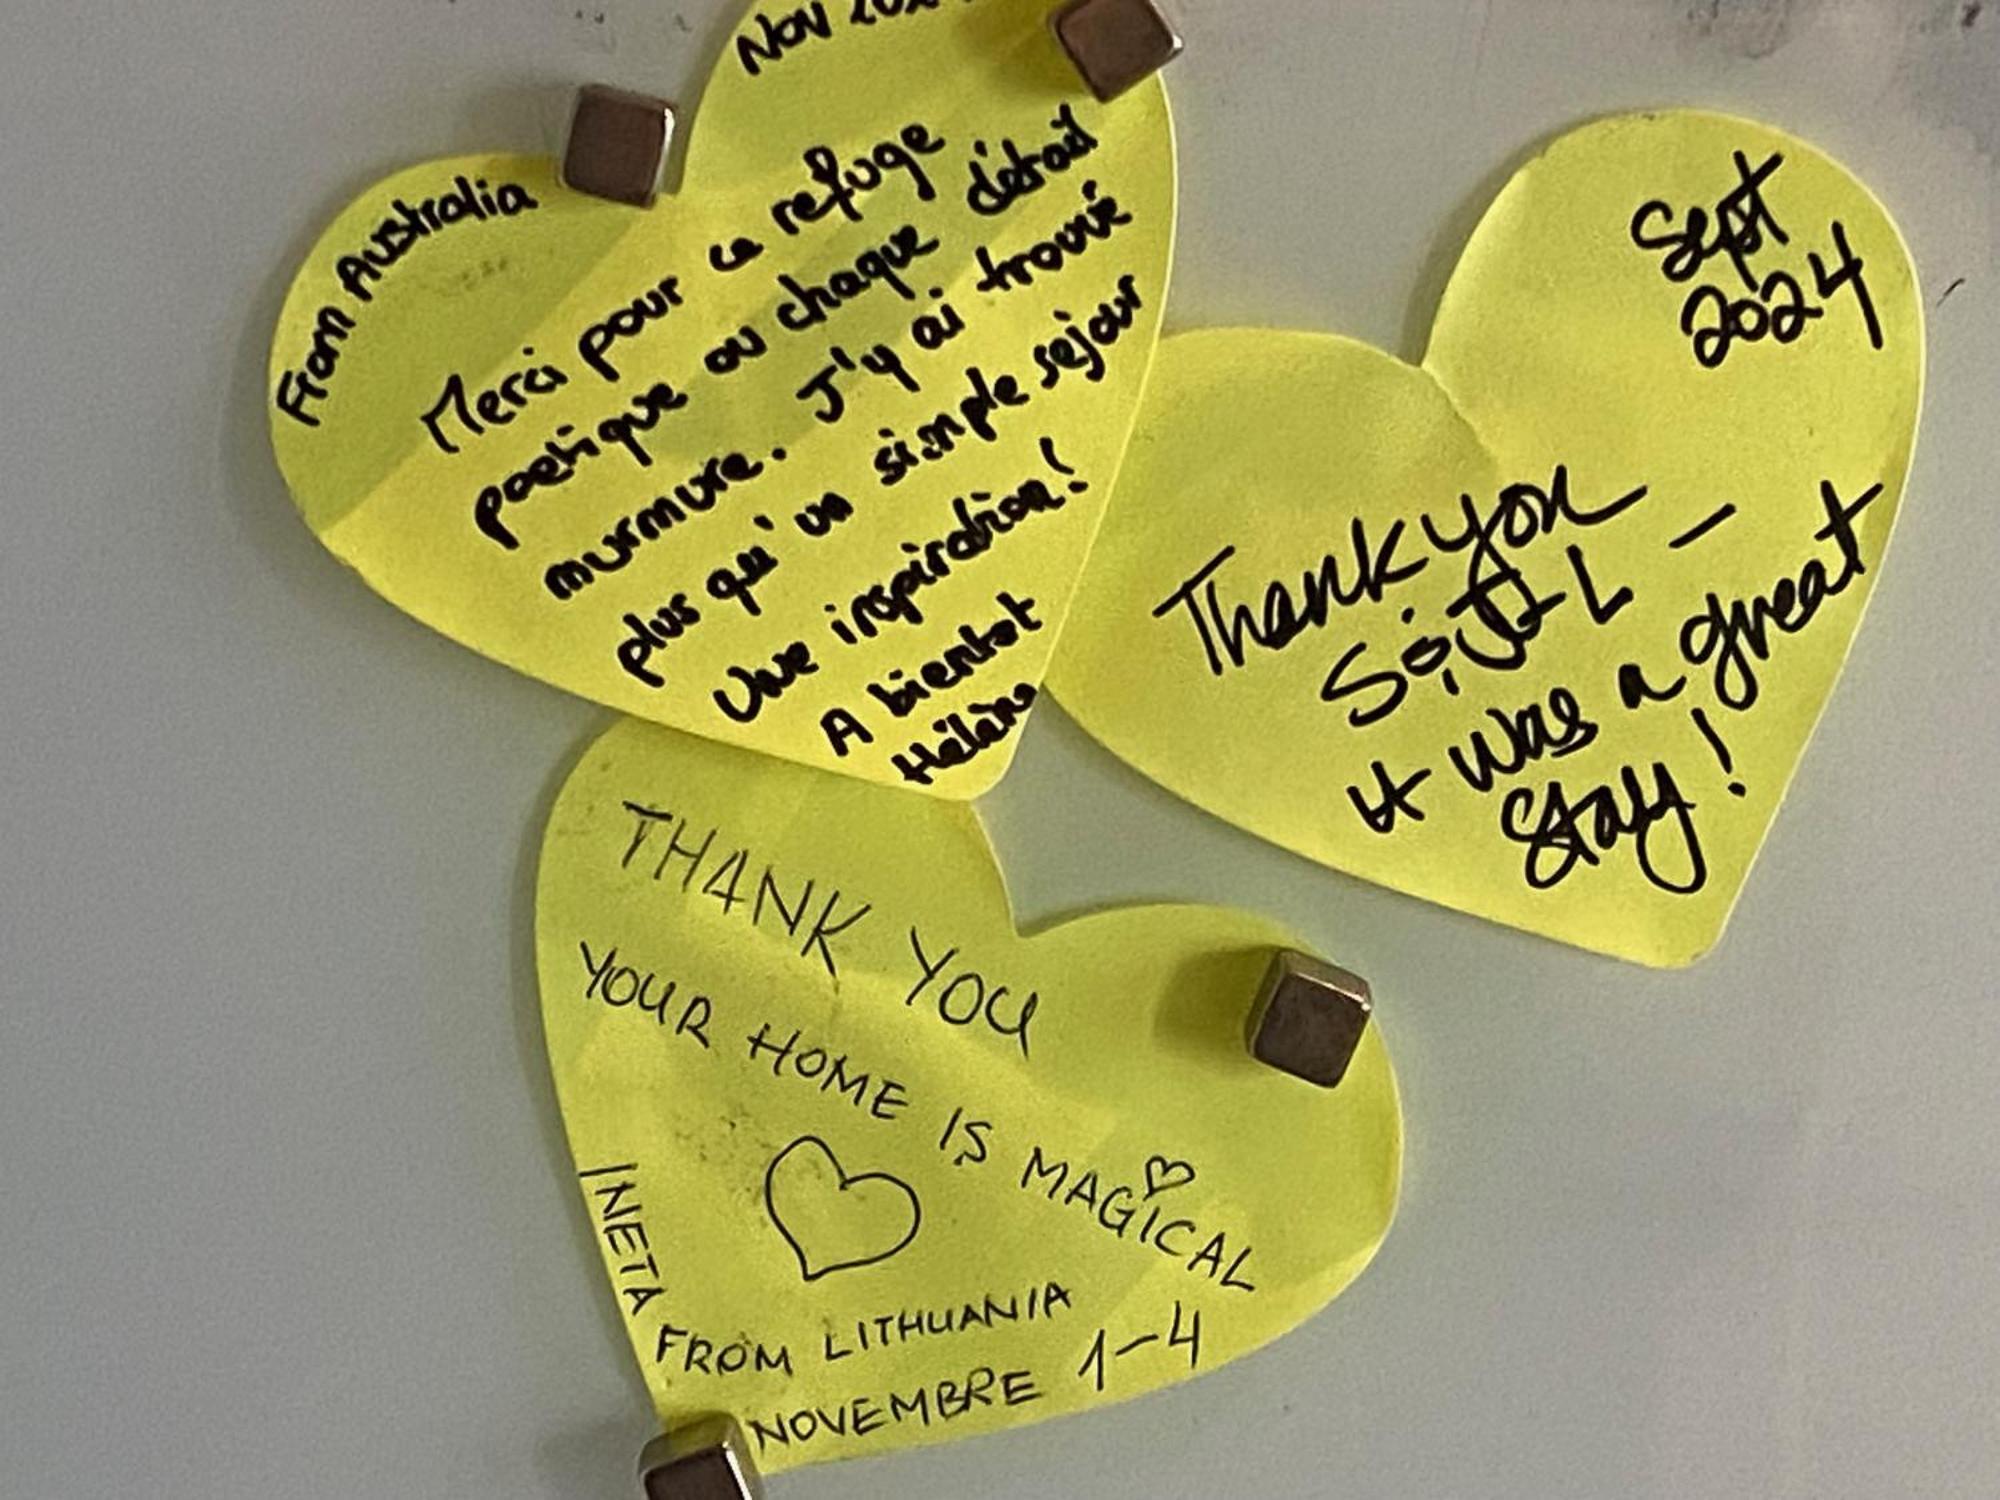 From Australia
Nov
Merci pour ce refuge
poetique ou chaque détail
murmure. J'y ai trouvé
plus qu'un simple séjour
Une inspiration!
A bientot
Hélène
Sept
2024
Thank you
it was a great
stay!
THANK YOU
YOUR HOME IS MAGICAL
INETA
FROM LITHUANIA
NOVEMBRE 1-4